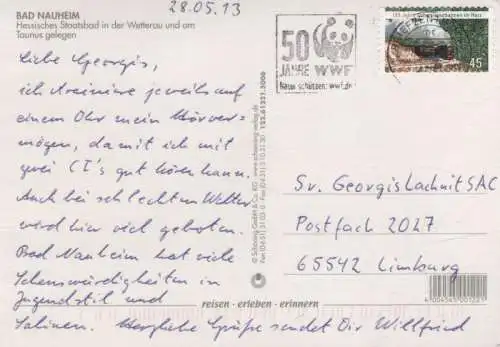 28.05.13
BAD NAUHEIM
Hessisches Staatsbad in der Wetterau und am
Taunus gelegen
Liebe Georgis,
ich trainiere jeweils auf
einem Ohr mein Hörver-
mögen, damit ich mit
zwei CI's gut hören kann.
Auch bei schlechtem Wetter
wird hier viel geboten.
Bad Nauheim hat viele
Sehenswürdigkeiten in
Jugendstil und
Salinen. Herzliche Grüße sendet Dir Willfried
© Schöning GmbH & Co. KG
www.schoening-verlag.de
50
JAHRE WWF
Natur schützen: wwf.de
45
Sr. Georgis Lachnit SAC
Postfach 2027
65542 Limburg
reisen · erleben · erinnern